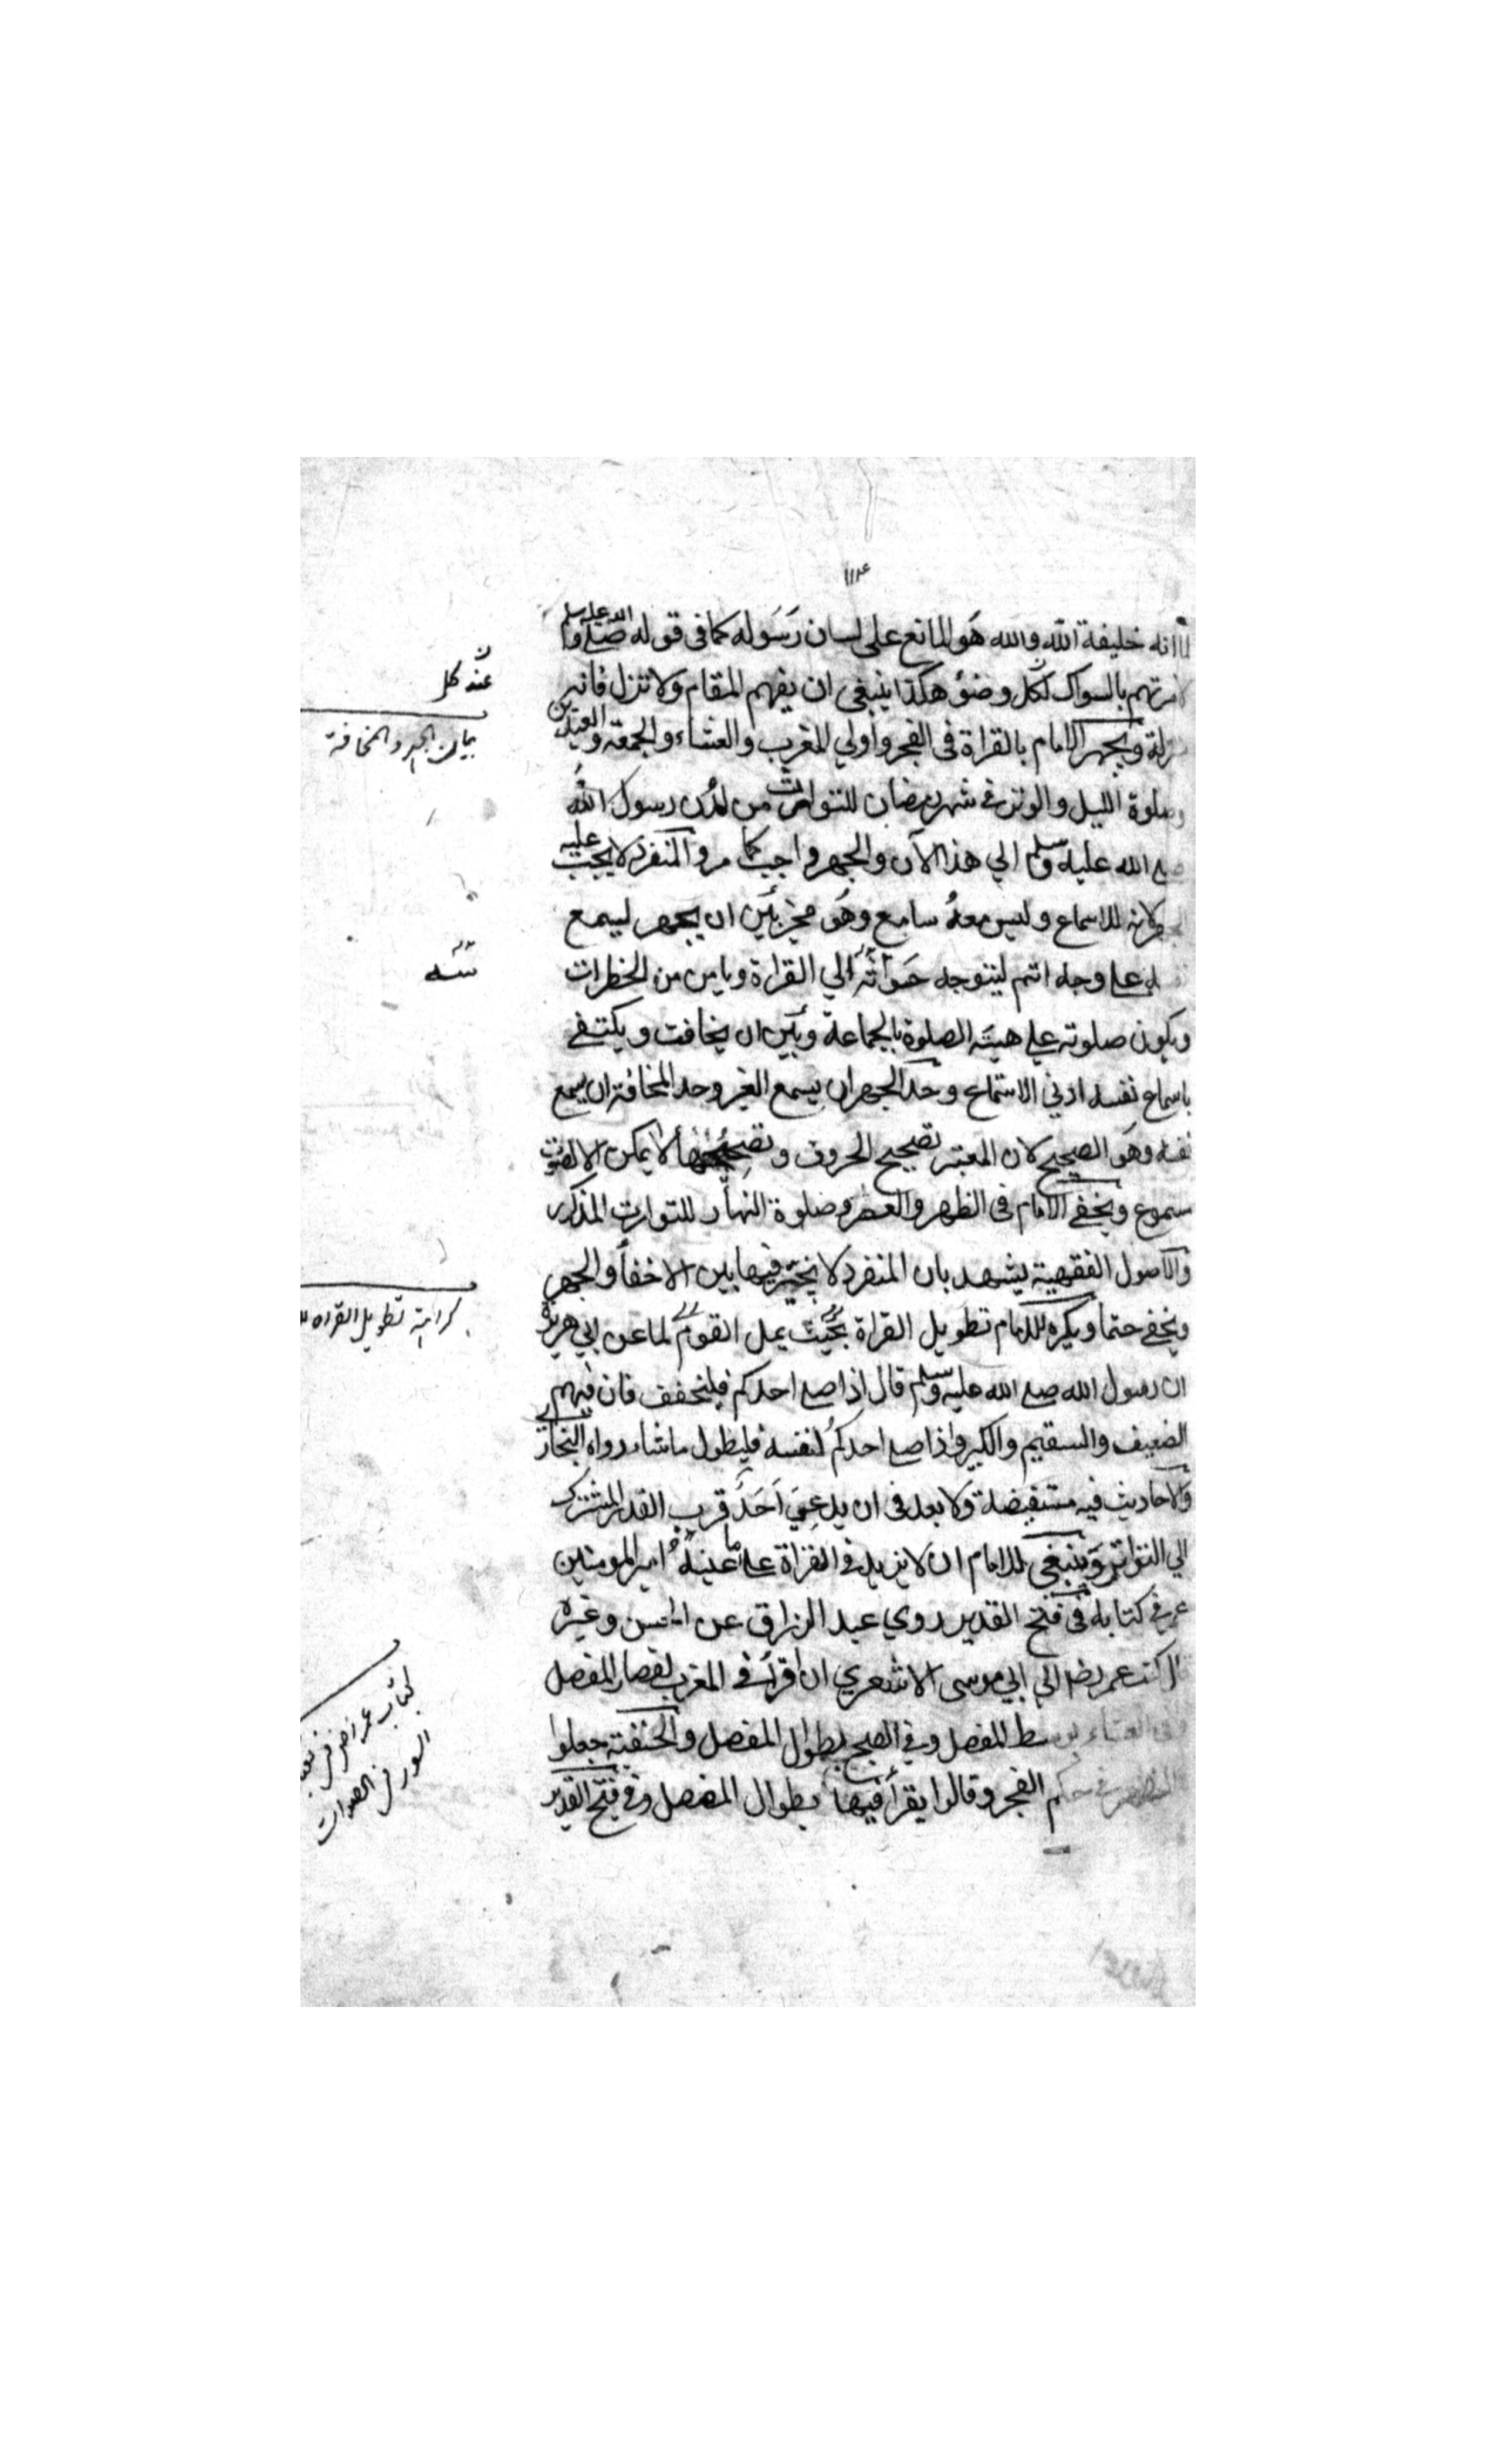 لما انه خليفة الله والله هو المانع على لسان رسوله كما في قوله صلى الله عليه وسلم
لامرتهم بالسواك لكل وضؤ هكذا ينبغي ان يفهم المقام ولا تنزل فانه
مزلة ويجهر الامام بالقراة في الفجر وأولي المغرب والعشاء والجمعة والعيدين
وصلوة الليل والوتر في شهر رمضان للتوارث من لدن رسول الله
صلى الله عليه وسلم الي هذا الآن والجهر واجب كما مر والمنفرد لا يجب عليه
لانه للاسماع وليس معه سامع وهو مخير بين ان يجهر ليسمع
علي وجه اتم ليتوجه حواسه الي القراة ويامن من الخطرات
ويكون صلوته علي هيئة الصلوة بالجماعة وبين ان يخافت ويكتفي
باسماع نفسه ادني الاستماع وحد الجهر ان يسمع الغير وحد المخافتة ان يسمع
نفسه وهو الصحيح لان المعتبر تصحيح الحروف وتصحيحها لا يمكن الا لصوت
مسموع ويخفي الامام في الظهر والعصر وصلوة النهار للتوارث المذكور
والاصول الفقهية يشهد بان المنفرد لا يخير فيها بين الاخفأ والجهر
ويخفي حتما ويكره للامام تطويل القراة بحيث يمل القوم لما عن ابي هريرة
ان رسول الله صلى الله عليه وسلم قال اذا صلى احدكم فليخفف فان فيهم
الضعيف والسقيم والكبير واذا صلى احدكم لنفسه فليطول ما شاء رواه البخاري
والاحاديث فيه مستفيضة ولا بعد في ان يدعي احد قرب القدر المشترك
الي التواتر وينبغي للامام ان لا يزيد في القراة على ما عينه امير المومنين
عمر في كتابه في فتح القدير روي عبد الرزاق عن الحسن وغيره
قال كتب عمر رضي الي ابي موسى الاشعري ان اقرأ في المغرب بقصار المفصل
وفي العشاء بوسط المفصل وفي الصبح بطوال المفصل والحنفية جعلوا
الظهر في حكم الفجر وقالوا يقرأ فيها بطوال المفصل وفي فتح القدير
عند كل
بيان الجهر والمخافتة
نفسه
كراهة تطويل القراه
كتاب عمر رضي في
السور في الصلوات